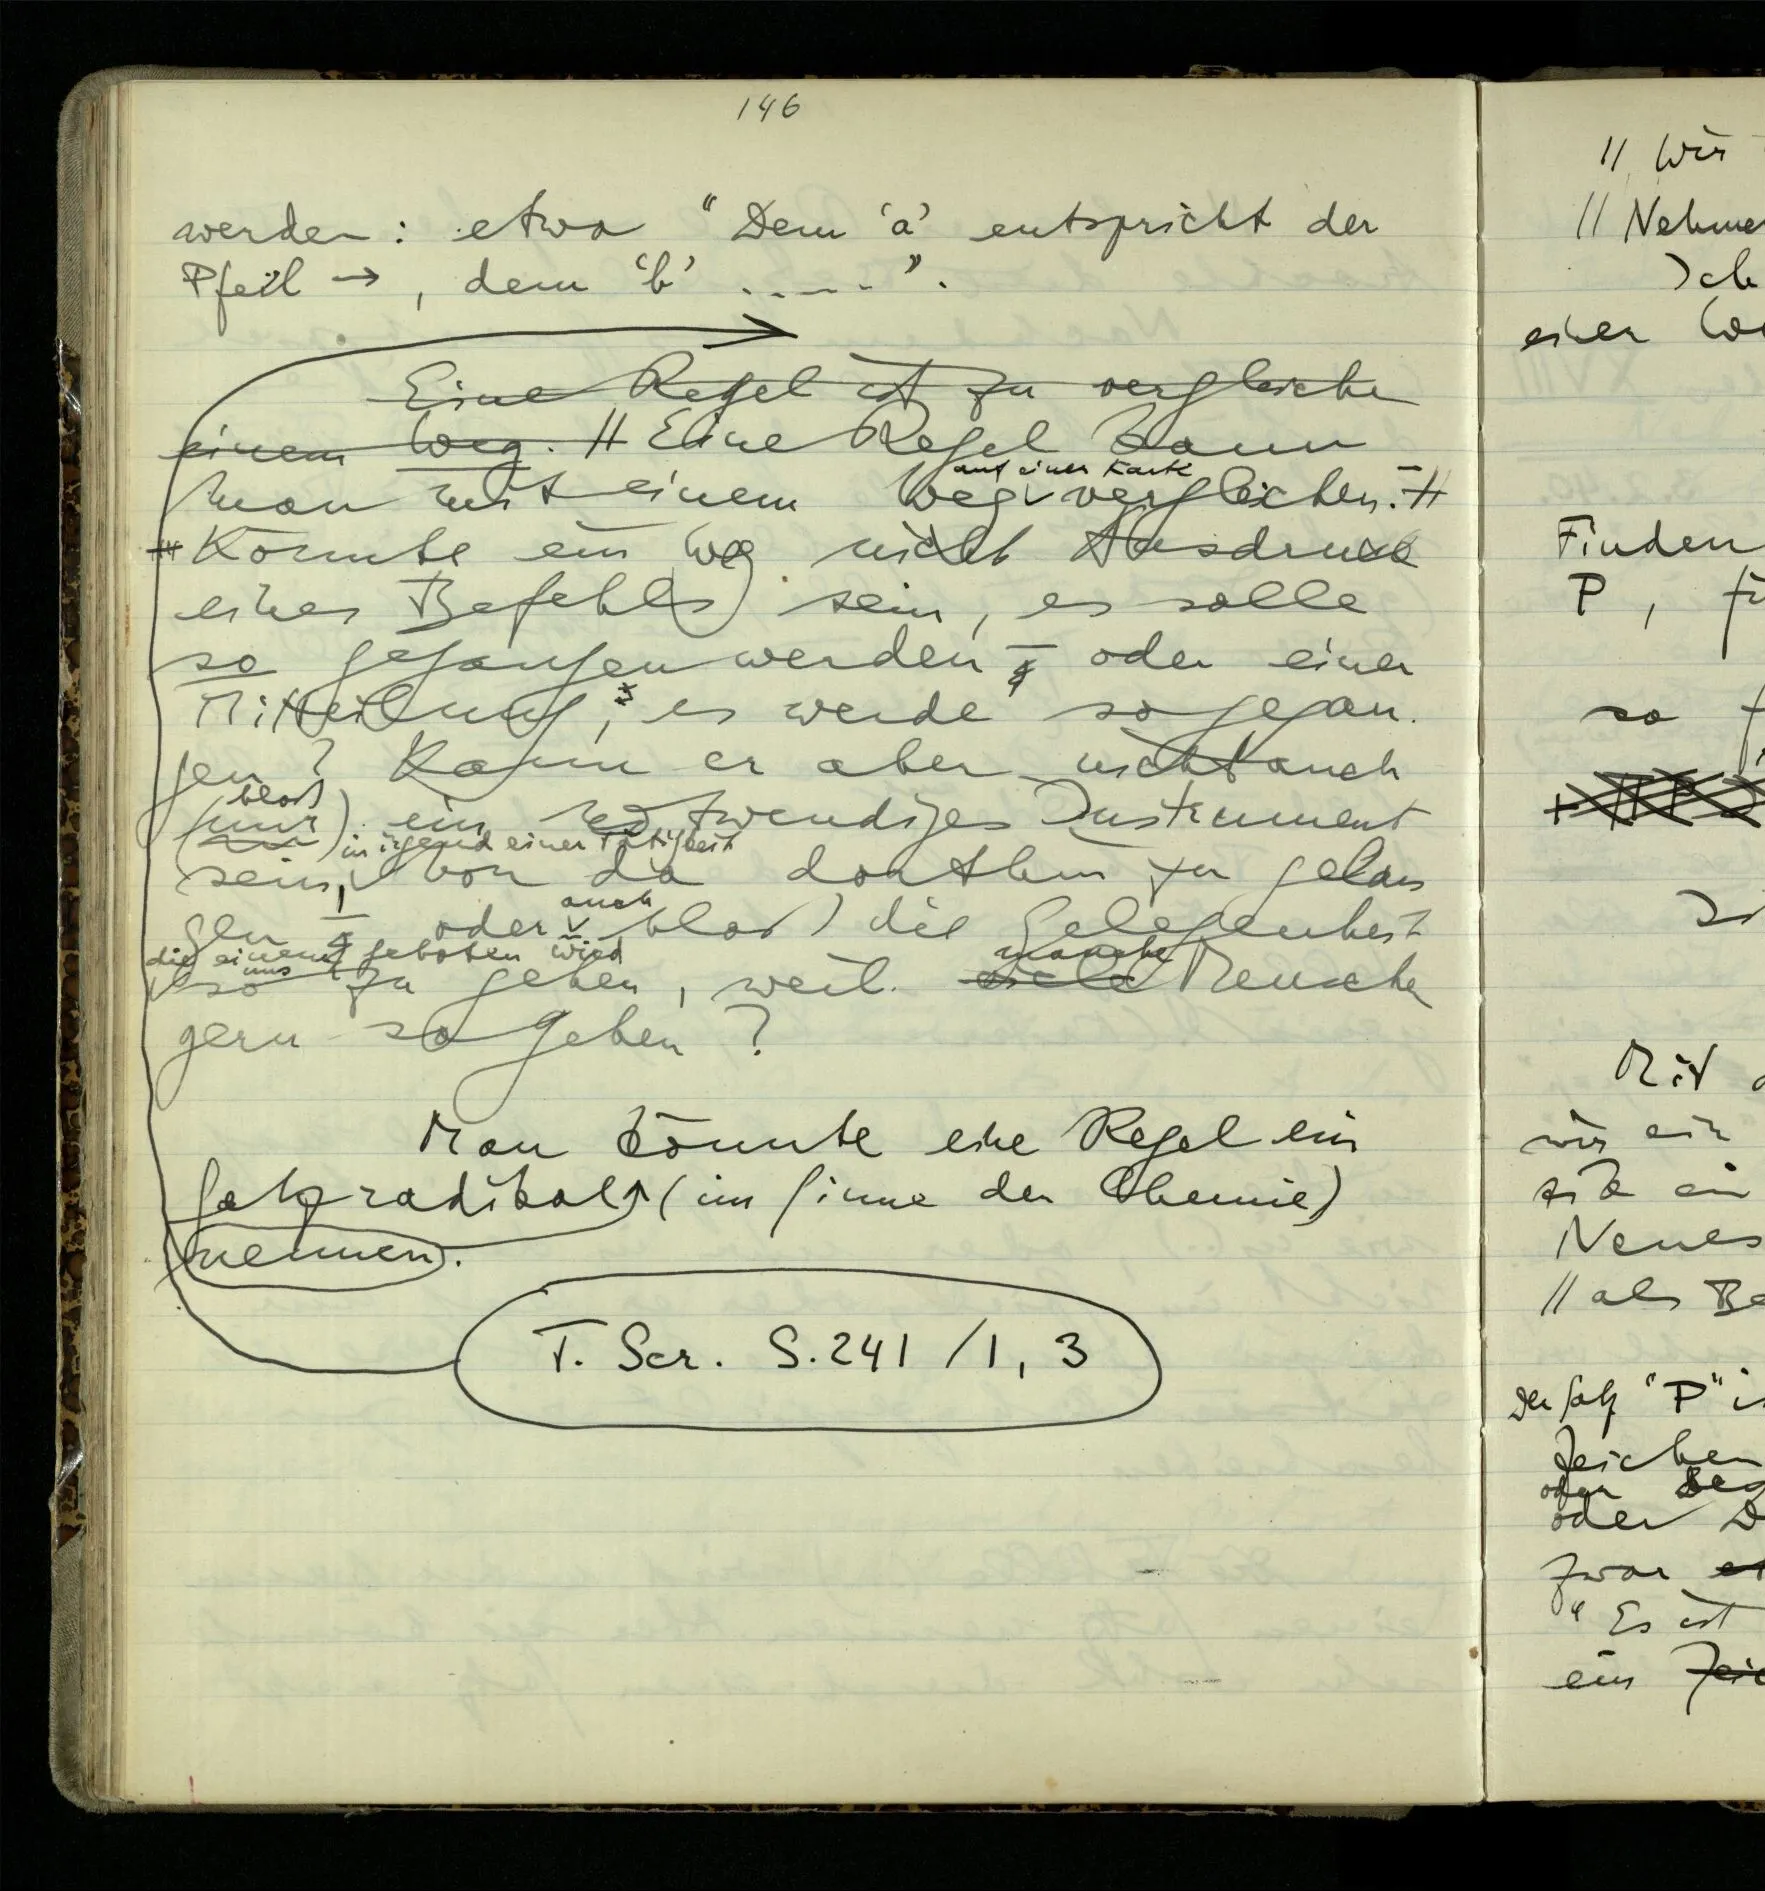 146
werden: etwa "Dem 'a' entspricht der
Pfeil →, dem 'b' ....." .
Eine Regel ist zu vergleichen
einem Weg. // Eine Regel kann
auf einer Karte
man mit einem Weg vergleichen. – //
Könnte ein Weg nicht Ausdruck
eines Befehls sein, es solle
so gegangen werden – oder einer
Mitteilung, es werde so gegan-
gen? Kann er aber nicht auch
bloß
(nur) ein notwendiges Instrument
in irgend einer Tätigkeit
sein, von da dorthin zu gelan
auch
gen – oder bloß die Gelegenheit
die einem geboten wird
uns
manche
so zu gehen, weil viele Menschen
gern so gehen?
Man könnte eine Regel ein
Satzradikal (im Sinne der Chemie)
nennen.
T. Scr. S. 241 / 1, 3
// Wir
// Nehmen
Ich
einer
Finden
P,
so
Mit
wir ein
sie ein
Neues
// als Be
Der Satz "P" is
Zeichen
oder
oder D
zwar
"Es ist
ein Zeic